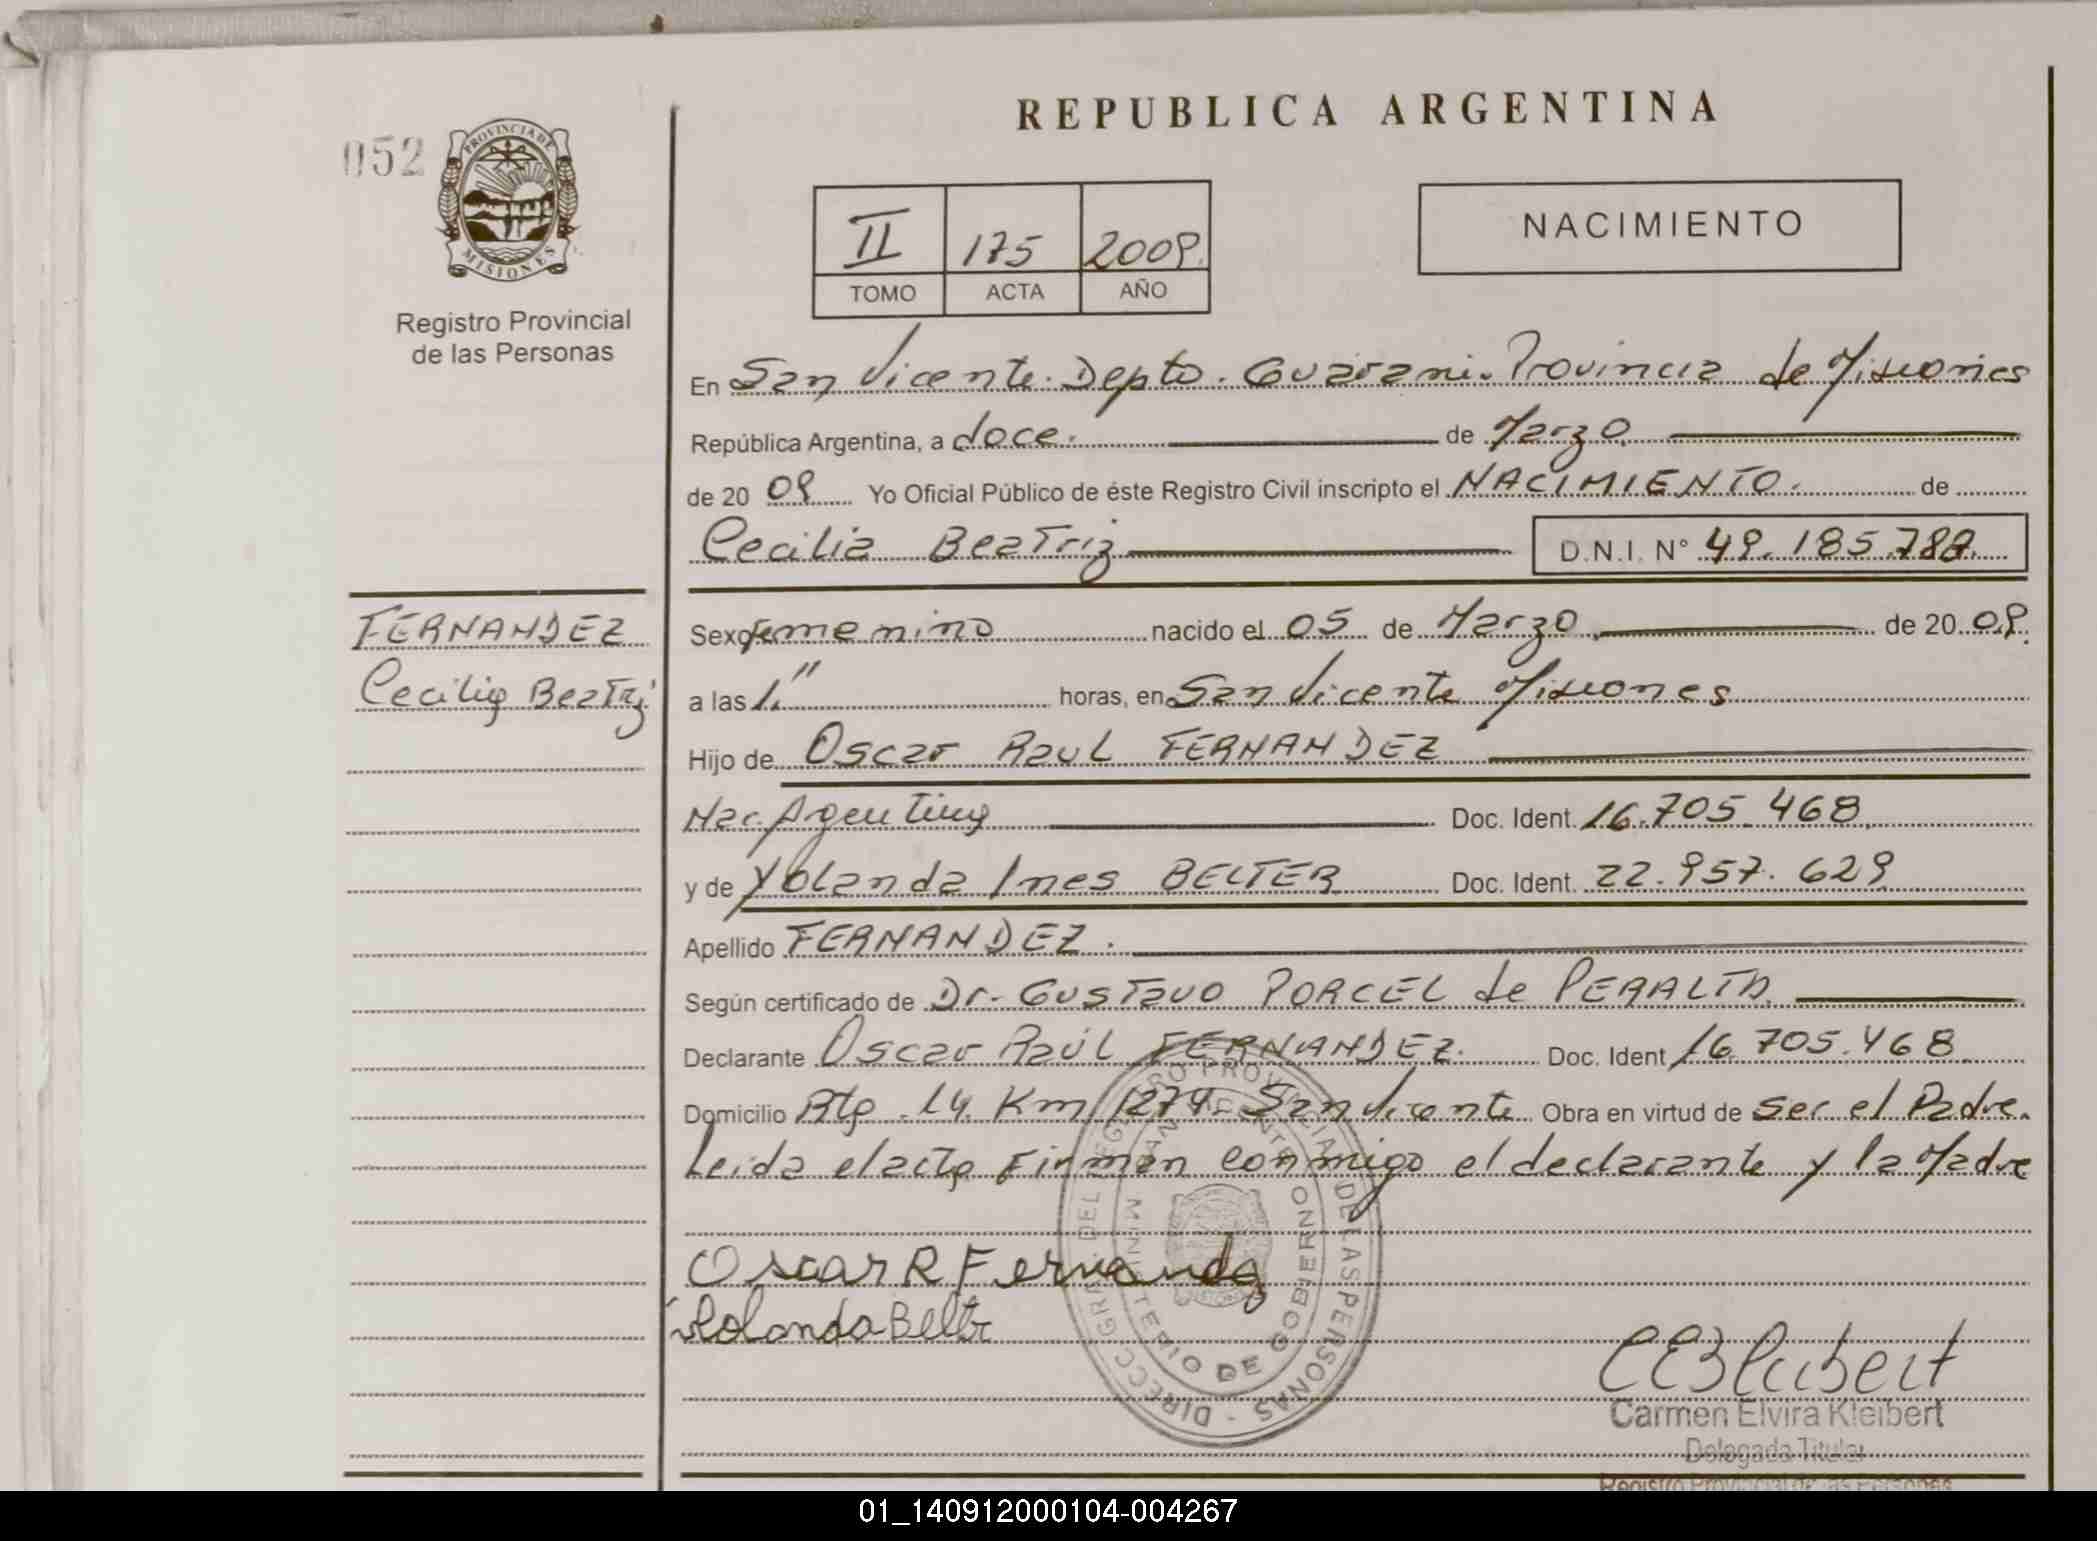 REPUBLICA ARGENTINA
052
PROVINCIA DE
MISIONES
Registro Provincial
de las Personas
II 175 2009.
TOMO ACTA AÑO
NACIMIENTO
En San Vicente. Depto. Guarani. Provincia de Misiones
República Argentina, a doce. de Marzo
de 20 09 Yo Oficial Público de éste Registro Civil inscripto el NACIMIENTO. de
Cecilia Beatriz D.N.I. N° 49.185.789.
FERNANDEZ
Cecilia Beatriz
Sexo femenino nacido el 05 de Marzo de 20 09.
a las 1." horas, en San Vicente Misiones
Hijo de Oscar Raul FERNANDEZ
Nac. Argentina Doc. Ident. 16.705.468
y de Yolanda Ines BELTER Doc. Ident. 22.957.629
Apellido FERNANDEZ.
Según certificado de Dr. Gustavo PORCEL de PERALTA
Declarante Oscar Raúl FERNANDEZ. Doc. Ident 16.705.468
Domicilio Rta. 14. Km 1279. San Vicente Obra en virtud de ser el Padre.
Leida el acta Firman conmigo el declarante y la Madre
Oscar R Fernandez
Yolanda Belter
DIRECC. GRAL. DEL REGISTRO PROVINCIAL DE LAS PERSONAS -
MINISTERIO DE GOBIERNO
SAN VICENTE
CEKleibert
Carmen Elvira Kleibert
Delegada Titular
Registro Provincial de las Personas
01_140912000104-004267